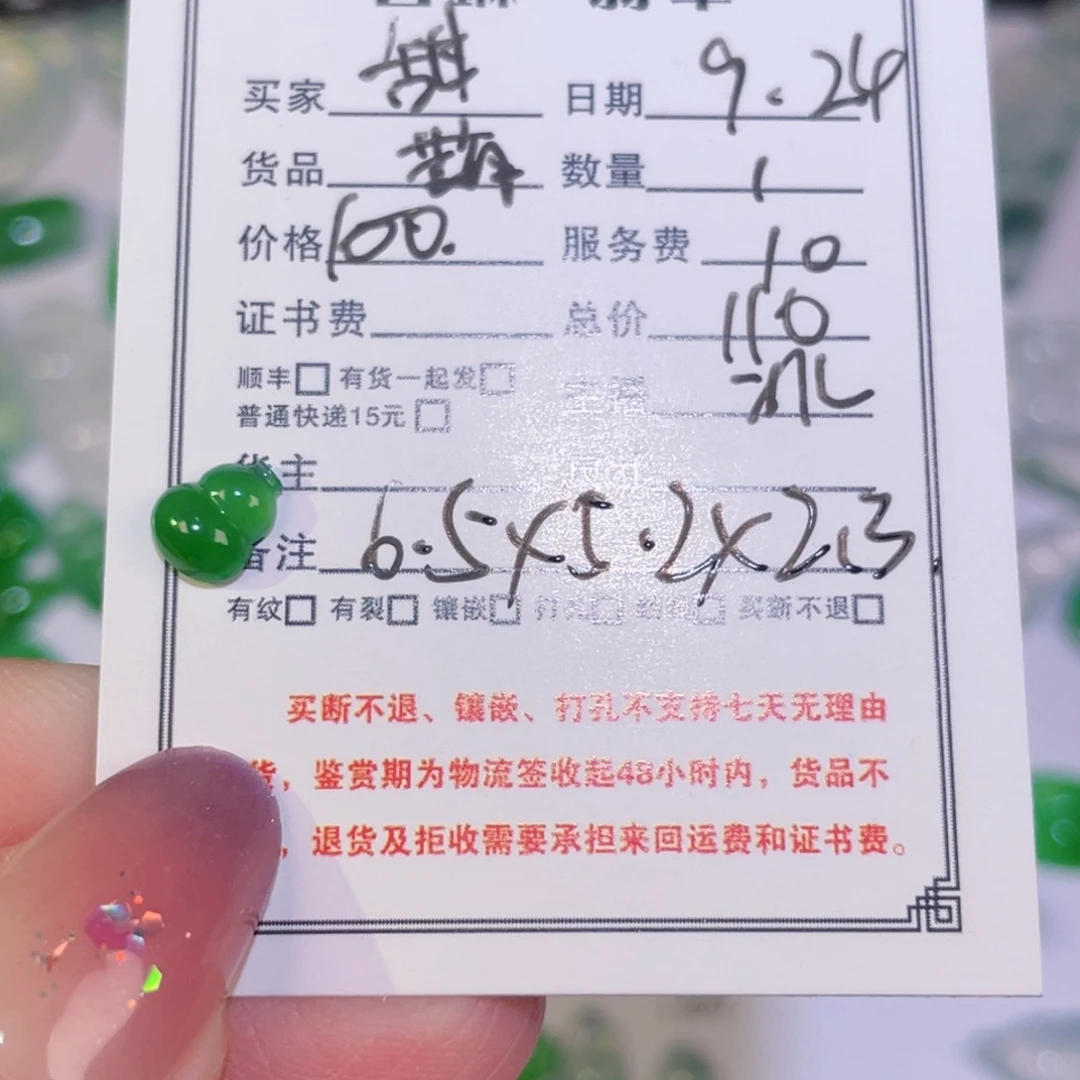 买家 日期 9.24
货品 数量 1
价格 100. 服务费 10
证书费 总价 110
顺丰 有货一起发
普通快递15元 主播
货主
备注 6.5×5.2×2.3
有纹 有裂 镶嵌 买断不退
买断不退、镶嵌、打孔不支持七天无理由
货，鉴赏期为物流签收起48小时内，货品不
，退货及拒收需要承担来回运费和证书费。